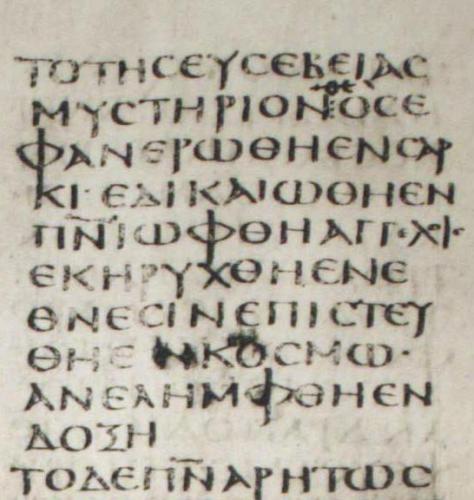 ΤΟΤΗϹΕΥϹΕΒΕΙΑϹ
θε
ΜΥϹΤΗΡΙΟΝΟϹΕ
ΦΑΝΕΡΩΘΗΕΝϹΑΡ
ΚΙ·ΕΔΙΚΑΙΩΘΗΕΝ
ΠΝ̅ΙΩΦΘΗΑΓΓ·ΧΙ·
ΕΚΗΡΥΧΘΗΕΝΕ
ΘΝΕϹΙΝΕΠΙϹΤΕΥ
ΘΗΕΝΚΟϹΜΩ·
ΑΝΕΛΗΜΦΘΗΕΝ
ΔΟΞΗ
ΤΟΔΕΠΝ̅ΑΡΗΤΩϹ